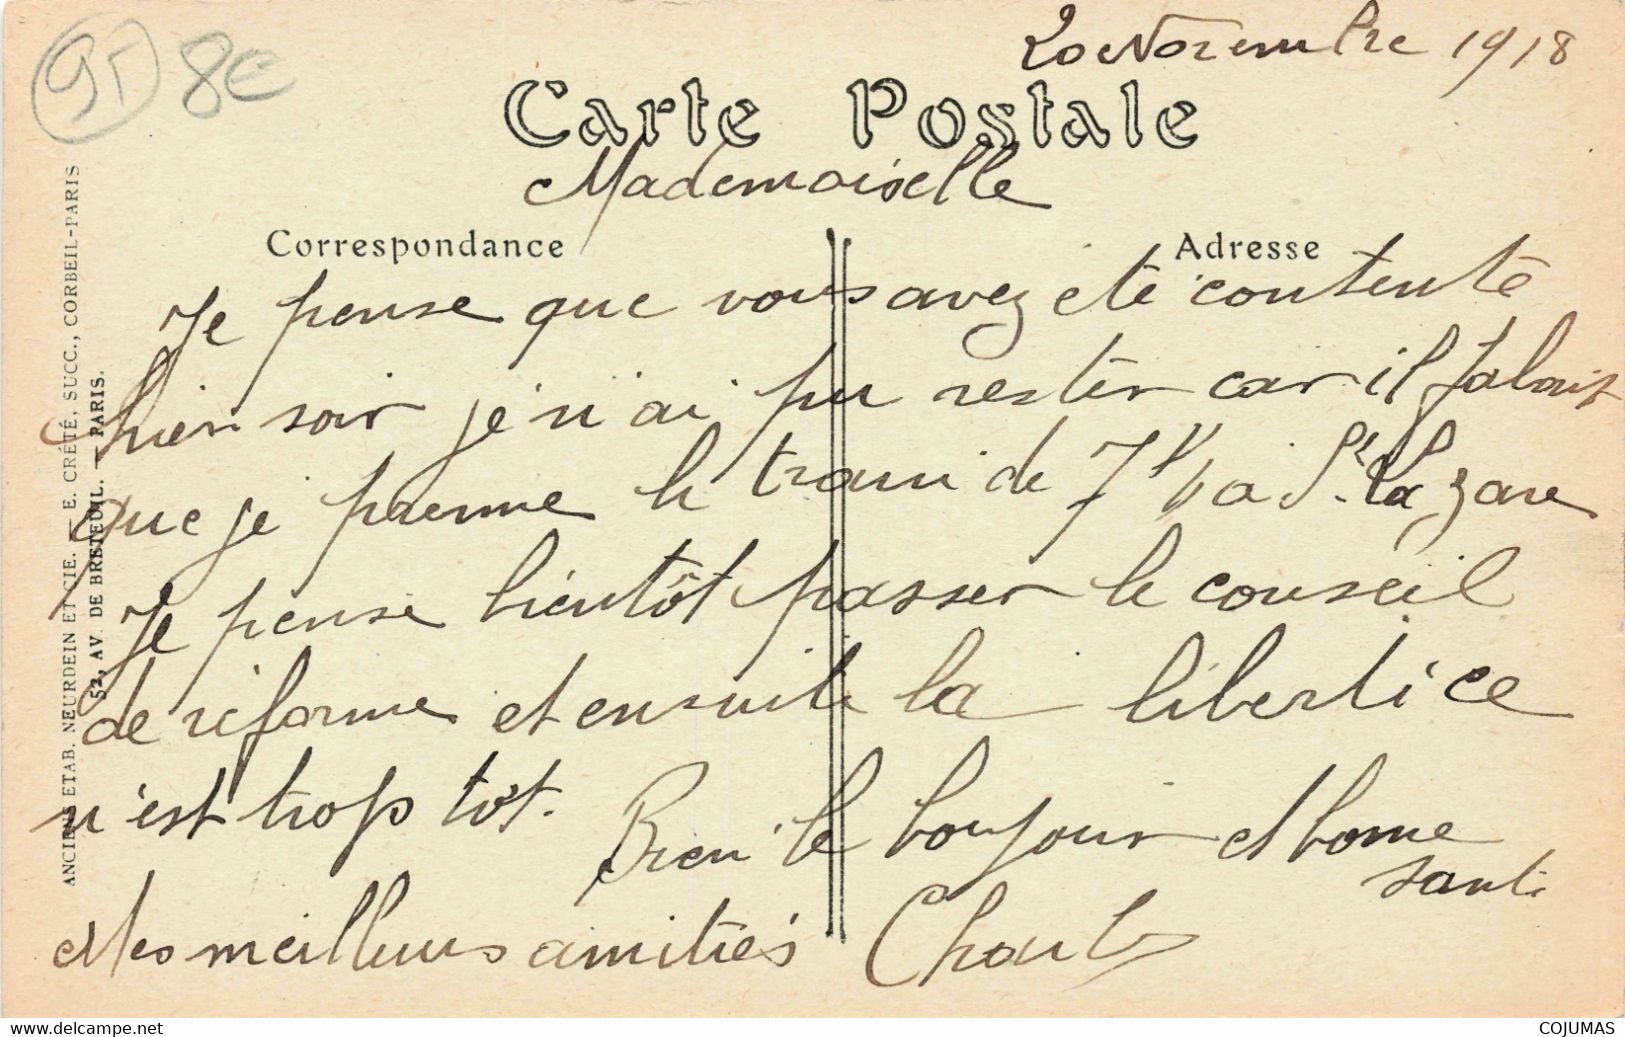 95 8€
20 Novembre 1918
Carte Postale
Mademoiselle
Correspondance
Adresse
Je pense que vous avez été contente
hier soir je n'ai pu rester car il falait
que je prenne le train de 7h ½ a St. Lazare
Je pense bientôt passer le conseil
de réforme et ensuite la liberté ce
n'est trop tôt. Bien le bonjour et bonne
santé
Mes meilleurs amitiés Charles
ANCIENS ETAB. NEURDEIN ET CIE. — E. CRÉTÉ, SUCC., CORBEIL-PARIS
52, AV. DE BRETEUIL. — PARIS.
www.delcampe.net
COJUMAS